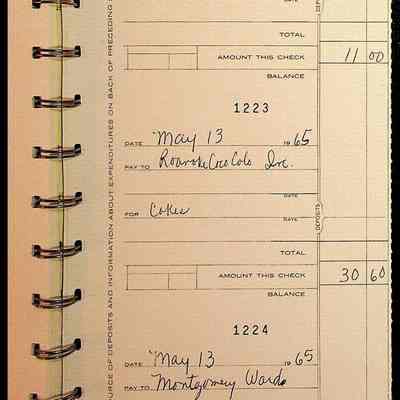 TOTAL
AMOUNT THIS CHECK 11 00
BALANCE
1223
DATE May 13 1965
PAY TO Roanoke Coca Cola Inc.
DATE
FOR Cokes
DATE
DEPOSITS
TOTAL
AMOUNT THIS CHECK 30 60
BALANCE
1224
DATE May 13 1965
PAY TO Montgomery Wards
OURCE OF DEPOSITS AND INFORMATION ABOUT EXPENDITURES ON BACK OF PRECEDING